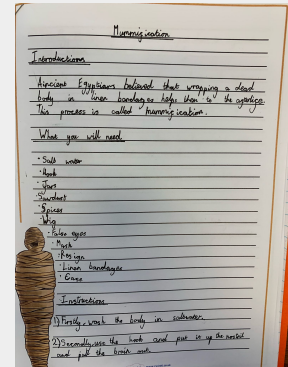 Mummification
Introduction
Aincient Egyptians believed that wrapping a dead
body in linen bandages helps then to the
This process is called mummification.
What you will need
· Salt water
· Hook
· Jars
· Sawdust
· Spices
· Wig
· False eyes
· Mask
· Resign
· Linen bandages
· Case
Instructions
1) Firstly, wash the body in saltwater.
2) Secondly, use the hook and put it up the nostril
and pull the brain out.